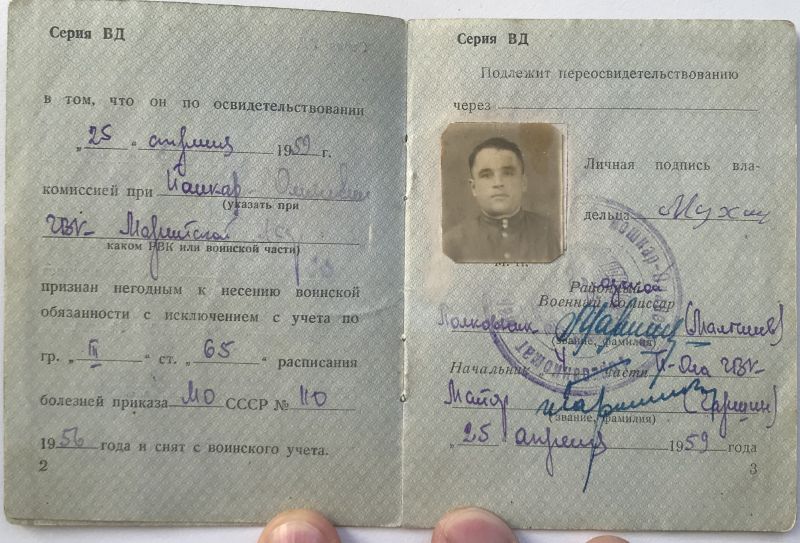 Серия ВД
в том, что он по освидетельствовании
„25“ апреля 1959 г.
комиссией при Йошкар-Олинском
(указать при
ГВК Марийской
каком РВК или воинской части)
признан негодным к несению воинской
обязанности с исключением с учета по
гр. „III“ ст. „65“ расписания
болезней приказа МО СССР № 110
1956 года и снят с воинского учета.
2
Серия ВД
Подлежит переосвидетельствованию
через
Личная подпись вла-
дельца
М. П.
Районный
Военный комиссар
Полковник
(звание, фамилия)
Начальник части Й-Ола ГВК
Майор
(звание, фамилия)
„25 апреля 1959 года
3